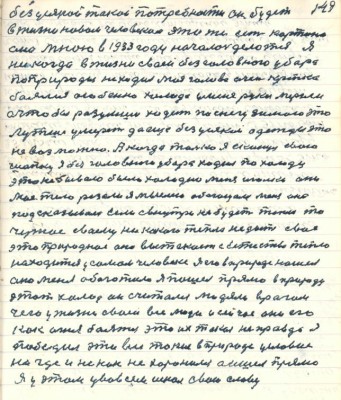 149
без всякой такой потребности он будет
в жизни новым человеком это те сит картина
она мною в 1933 году началось делаться Я
никогда в жизни своей без головного убора
по природе не ходил моя голова очен крепко
боялся особенно холода уменя руки мерзли
а чтобы разутым ходит по снегу зимою это
лутше умереть да еще безвсякой одежды это
не возможно. А когда только я скинул свою
шапку я без головного убора ходил по холоду
это небывало было холодно меня оно
мое тело резали я мыслию обогощал меня оно
подсказывало если с внутри не будет тепла то
чужие своему никакого тепло не даст свая
это природное оно вытекает с естества тепло
находится у самом человеке я его в природе нашел
оно меня обоготило я пошел прямо в природу
этот холод он считался людям врагом
чего у жизни своей все люди и сейчас оно его
как огня боятся это их такая не правда я
победил эти все токие в природе условия
ни где и не как не хоронился а шел прямо
Я у этом у во всем искал свою славу